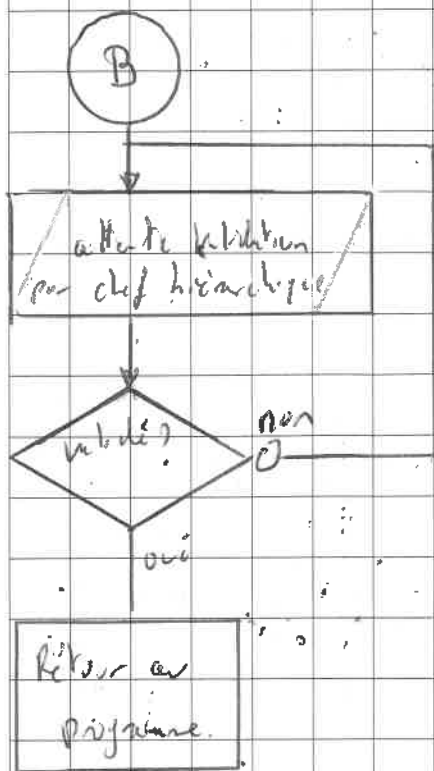 B
attente validation
par chef hiérarchique
validé?
non
oui
Retour au
programme.